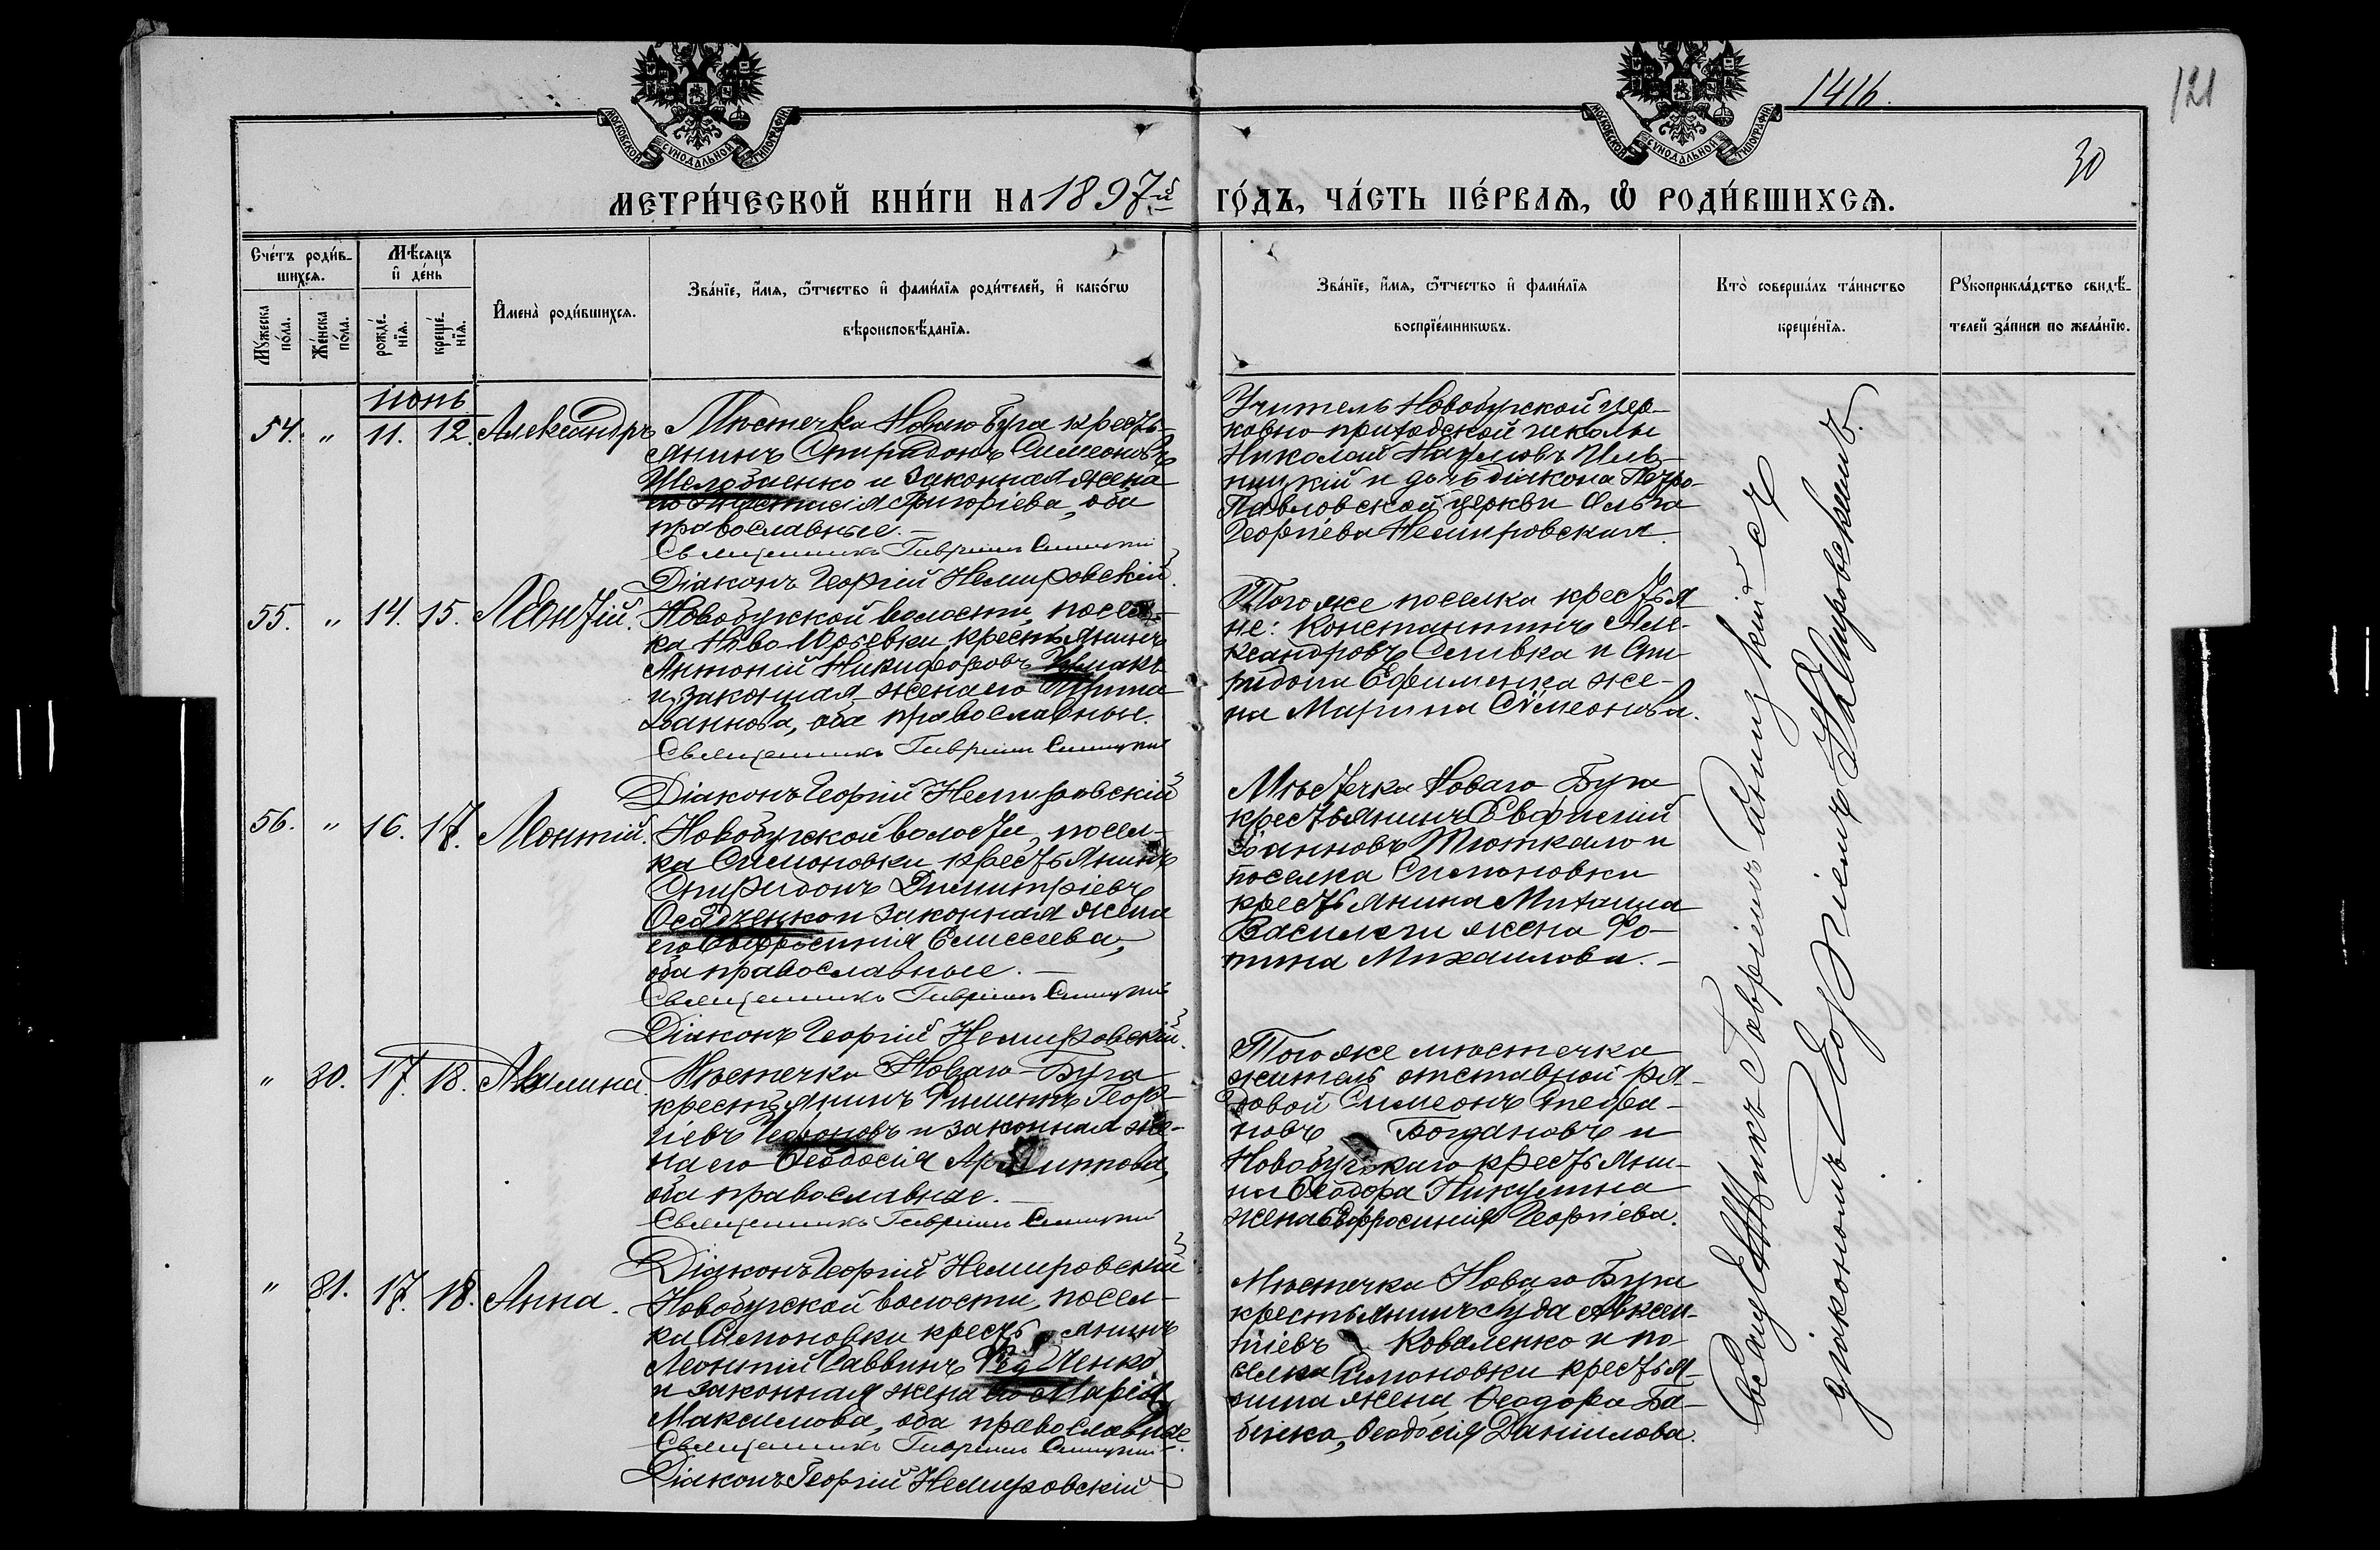 1416.
121
30
МОСКОВСКОЙ СѴНОДАЛЬНОЙ ТИПОГРАФІИ
МОСКОВСКОЙ СѴНОДАЛЬНОЙ ТИПОГРАФІИ
МЕТРИ́ЧЕСКОЙ КНИ́ГИ НА 1897й ГО́ДЪ, ЧА́СТЬ ПЕ́РВАѦ, Ѡ РОДИ́ВШИХСѦ.
Сче́тъ роди́в-
шихсѧ.
Мꙋ́жеска по́ла.
Же́нска по́ла.
Мѣ́сѧцъ
и҆ де́нь
рожде́-
нїѧ.
креще́-
нїѧ.
И҆мена̀ роди́вшихсѧ.
Зва́нїе, и҆́мѧ, ѻ҆́тчество и҆ фами́лїѧ роди́телей, и҆ како́гѡ
вѣроисповѣ́данїѧ.
Зва́нїе, и҆́мѧ, ѻ҆́тчество и҆ фами́лїѧ
воспрїе́мникѡвъ.
Кто̀ соверша́лъ та́инство
креще́нїѧ.
Рꙋкоприкла́дство свидѣ́-
телей за́писи по жела́нїю.
Іюнь
54. " 11. 12. Александръ
Мѣстечка Новаго Буга кресть-
янинъ Спиридонъ Симеоновъ
Шелобаенко и законная жена
его Анастасія Григоріева, оба
православные.
Священникъ Гавріилъ Синицкій
Діаконъ Георгій Немировскій
Учитель Новобугской цер-
ковно приходской школы
Николай Наумовъ Иль-
ницкій и дочь діакона Петро-
Павловской церкви Ольга
Георгіева Немировская.
55. " 14. 15. Леонтій.
Новобугской волости, посел-
ка Ново-Юрьевки, крестьянинъ
Антоній Никифоровъ
и законная жена его Ирина
Іоаннова, оба православные.
Священникъ Гавріилъ Синицкій
Діаконъ Георгій Немировскій
Того же поселка крестья-
не: Константинъ Але-
ксандровъ Сливка и Спи-
ридона Ефименка же-
на Марина Симеонова.
56. " 16. 17. Леонтій.
Новобугской волости, посел-
ка Симоновки крестьянинъ
Спиридонъ Димитріевъ
Осадченко и законная жена
его Евфросинія Елисеева,
оба православные.
Священникъ Гавріилъ Синицкій
Діаконъ Георгій Немировскій
Мѣстечка Новаго Буга
крестьянинъ Евфимій
Іоанновъ Тюткало и
поселка Симоновки
крестьянина Михаила
жена Фо-
тина Михаилова.
" 80. 17. 18. Акилина.
Мѣстечка Новаго Буга
крестьянинъ Филиппъ Геор-
гіевъ и законная же-
на его Ѳеодосія
оба православные.
Священникъ Гавріилъ Синицкій
Діаконъ Георгій Немировскій
Того же мѣстечка
житель отставной ря-
довой Симеонъ Стефа-
новъ Богдановъ и
Новобугскаго крестьяни-
на Ѳеодора Никулина
жена Евфросинія Георгіева.
" 81. 17. 18. Анна.
Новобугской волости, посел-
ка Симоновки крестьянинъ
Леонтій Саввинъ
и законная жена его Марія
Максимова, оба православные.
Священникъ Гавріилъ Синицкій
Діаконъ Георгій Немировскій
Мѣстечка Новаго Буга
крестьянинъ Іуда Авксен-
тіевъ Коваленко и по-
селка Симоновки крестья-
нина жена Ѳеодора Ба-
бенко, Ѳеодосія Даніилова.
Священникъ Гавріилъ Синицкій съ
діакономъ Георгіемъ Немировскимъ.